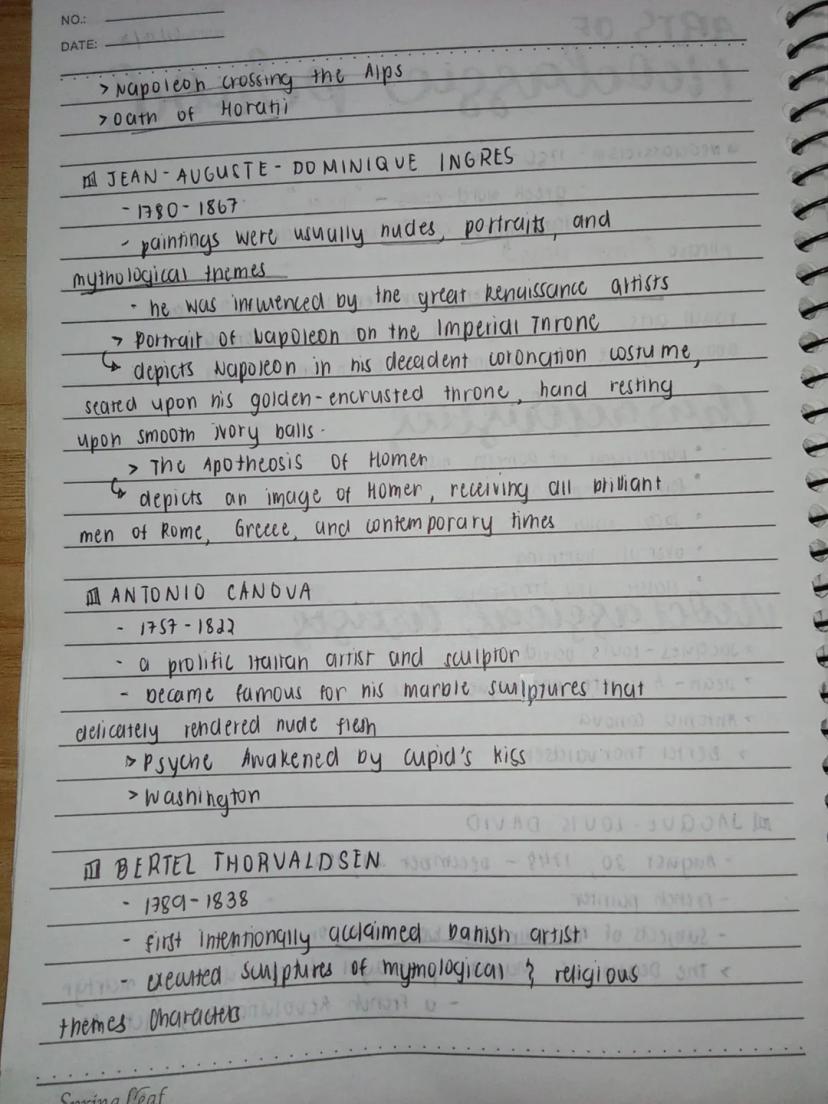 NO.:
DATE:
> Napoleon crossing the Alps
> Oath of Horatii
JEAN-AUGUSTE-DOMINIQUE INGRES
- 1780-1867
- paintings were usually nudes, portraits, and
mythological themes
- he was influenced by the great Renaissance artists
> Portrait of Napoleon on the Imperial Throne
↳ depicts Napoleon in his decadent coronation costume,
seated upon his golden-encrusted throne, hand resting
upon smooth ivory balls.
> The Apotheosis of Homer
↳ depicts an image of Homer, receiving all brilliant
men of Rome, Greece, and contemporary times
ANTONIO CANOVA
- 1757-1822
- a prolific Italian artist and sculptor
- became famous for his marble sculptures that
delicately rendered nude flesh
> Psyche Awakened by Cupid's kiss
> Washington
BERTEL THORVALDSEN
- 1789-1838
- first intentionally acclaimed Danish artist
- executed sculptures of mythological & religious
themes characters